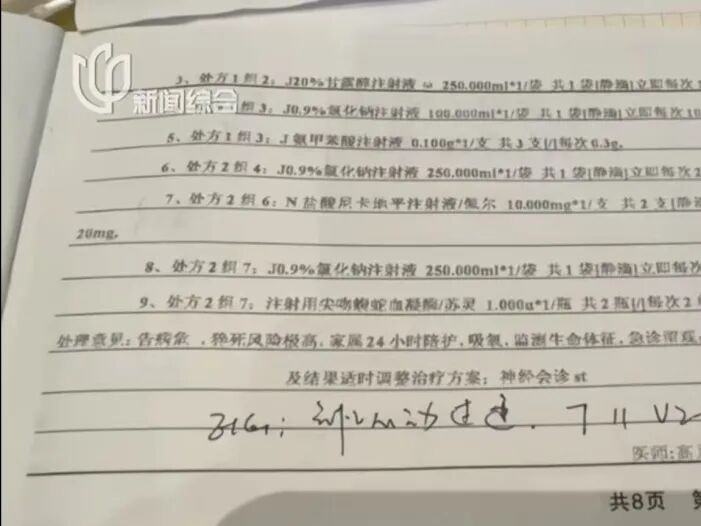 新闻综合
3、处方1组2：J20%甘露醇注射液 ω 250.000ml*1/袋 共1袋[静滴]立即每次1
组3：J0.9%氯化钠注射液 100.000ml*1/袋 共1袋[静滴]立即每次10
5、处方1组3：J氨甲苯酸注射液 0.100g*1/支 共3支[/]每次0.3g。
6、处方2组4：J0.9%氯化钠注射液 250.000ml*1/袋 共1袋[静滴]立即每次2
7、处方2组6：N盐酸尼卡地平注射液/佩尔 10.000mg*1/支 共2支[静滴
20mg。
8、处方2组7：J0.9%氯化钠注射液 250.000ml*1/袋 共1袋[静滴]立即每次
9、处方2组7：注射用尖吻蝮蛇血凝酶/苏灵 1.000u*1/瓶 共2瓶[/]每次2
处理意见：告病危，猝死风险极高，家属24小时陪护，吸氧，监测生命体征，急诊留观
及结果适时调整治疗方案；神经会诊st
医师：高
共8页 第